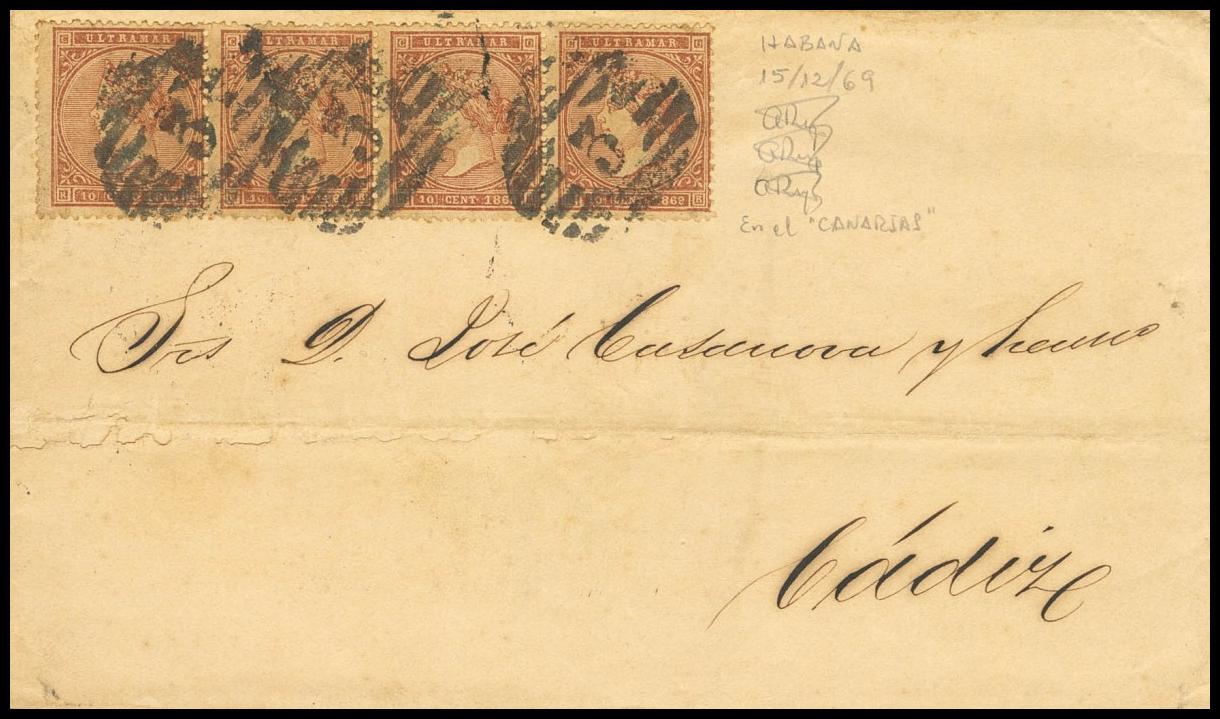 ULTRAMAR ULTRAMAR ULTRAMAR ULTRAMAR
10 CENT 186 10 CENT 1869
HABANA
15/12/69
En el "CANARIAS"
Srs D. José Casanova y hermo
Cádiz